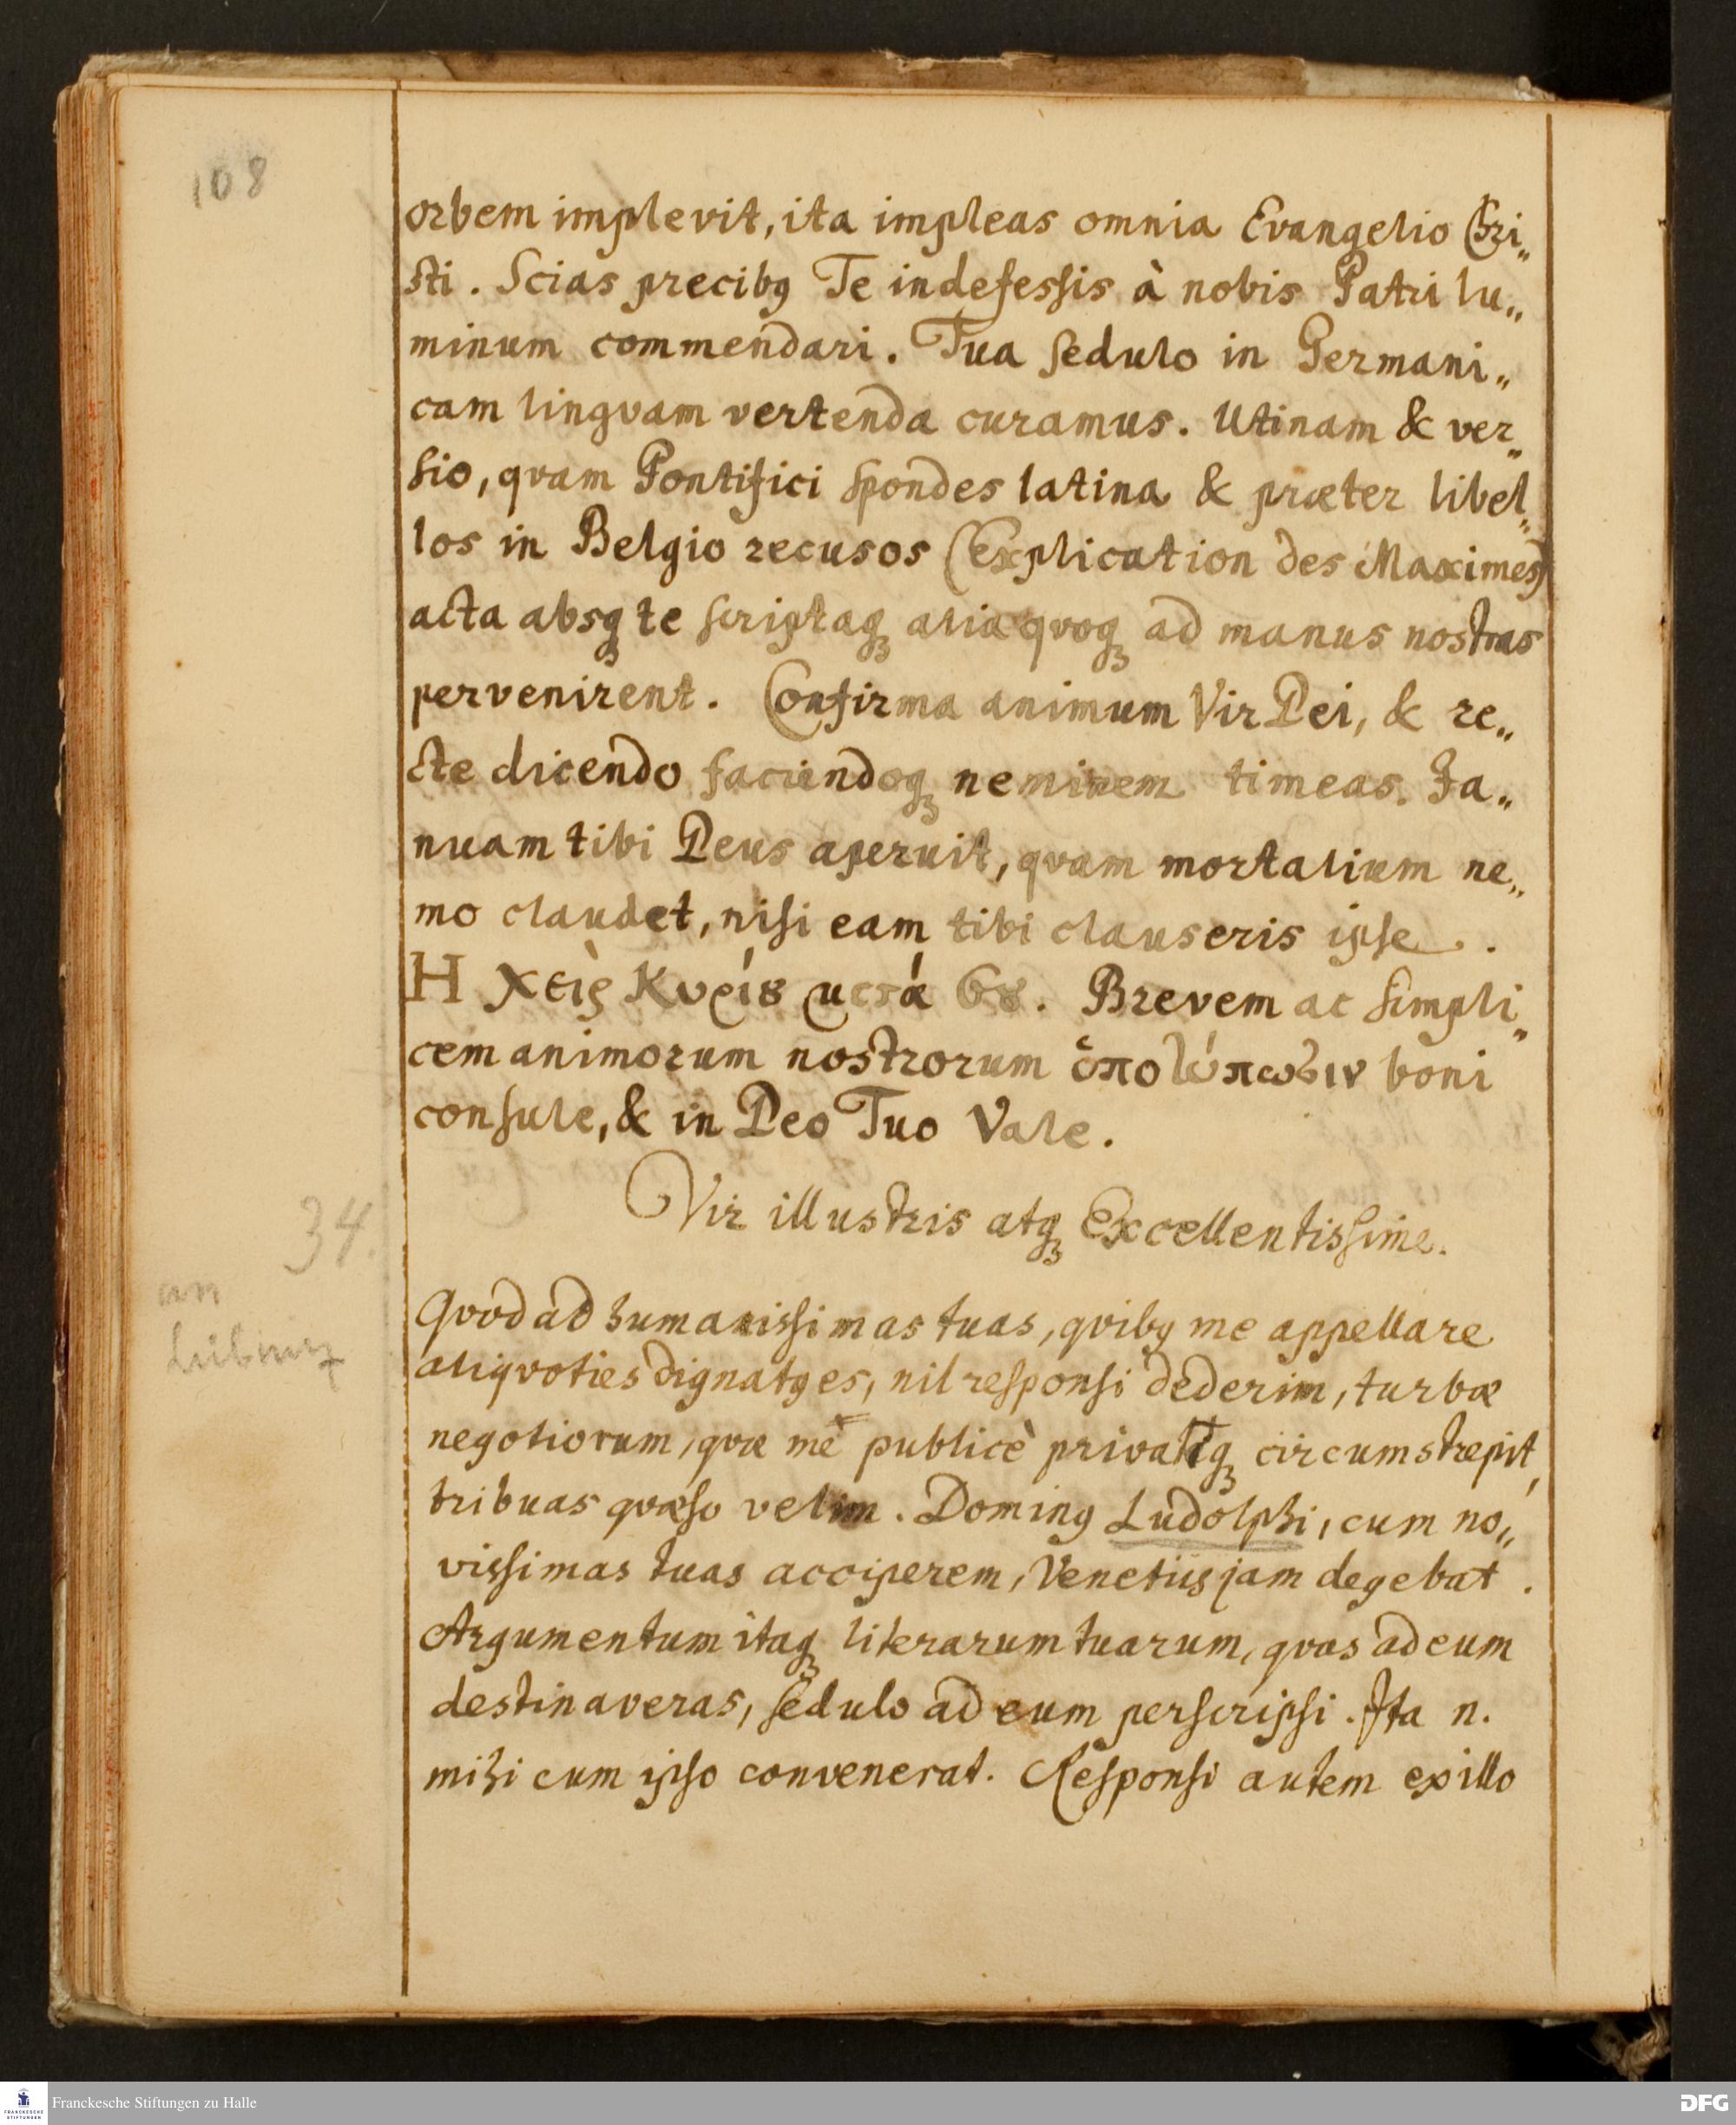 108
orbem implevit, ita impleas omnia Evangelio Chri„
sti. Scias precibꝰ Te indefessis à nobis Patri lu„
minum commendari. Tua sedulo in Germani„
cam lingvam vertenda curamus. Utinam & ver„
sio, qvam Pontifici spondes latina & præter libel„
los in Belgio recusos (Explication des Maximes)
acta absq, te scriptaq, alia qvoq, ad manus nostras
pervenirent. Confirma animum Vir Dei, & re„
cte dicendo faciendoq, neminem timeas. Ja„
nuam tibi Deus aperuit, qvam mortalium ne„
mo claudet, nisi eam tibi clauseris ipse.
Η χεὶρ Κυρίȣ μετά σȣ. Brevem ac simpli„
cem animorum nostrorum boni
consule, & in Deo Tuo Vale.
34.
Vir illustris atq, Excellentissime.
an
Leibniz
Qvod ad humanissimas tuas, qvibꝰ me appellare
aliqvoties dignatꝰ es, nil responsi dederim, turbæ
negotiorum, qvæ me publicè privatiq, circumstrepit,
tribuas qvæso velim. Dominꝰ Ludolphi, cum no„
vissimas tuas acciperem, Venetiis jam degebat.
Argumentum itaq, literarum tuarum, qvas ad eum
destinaveras, sedulo ad eum perscripsi. Ita n.
mihi cum ipso convenerat. Responsi autem ex illo
FRANCKESCHE STIFTUNGEN
Franckesche Stiftungen zu Halle
DFG